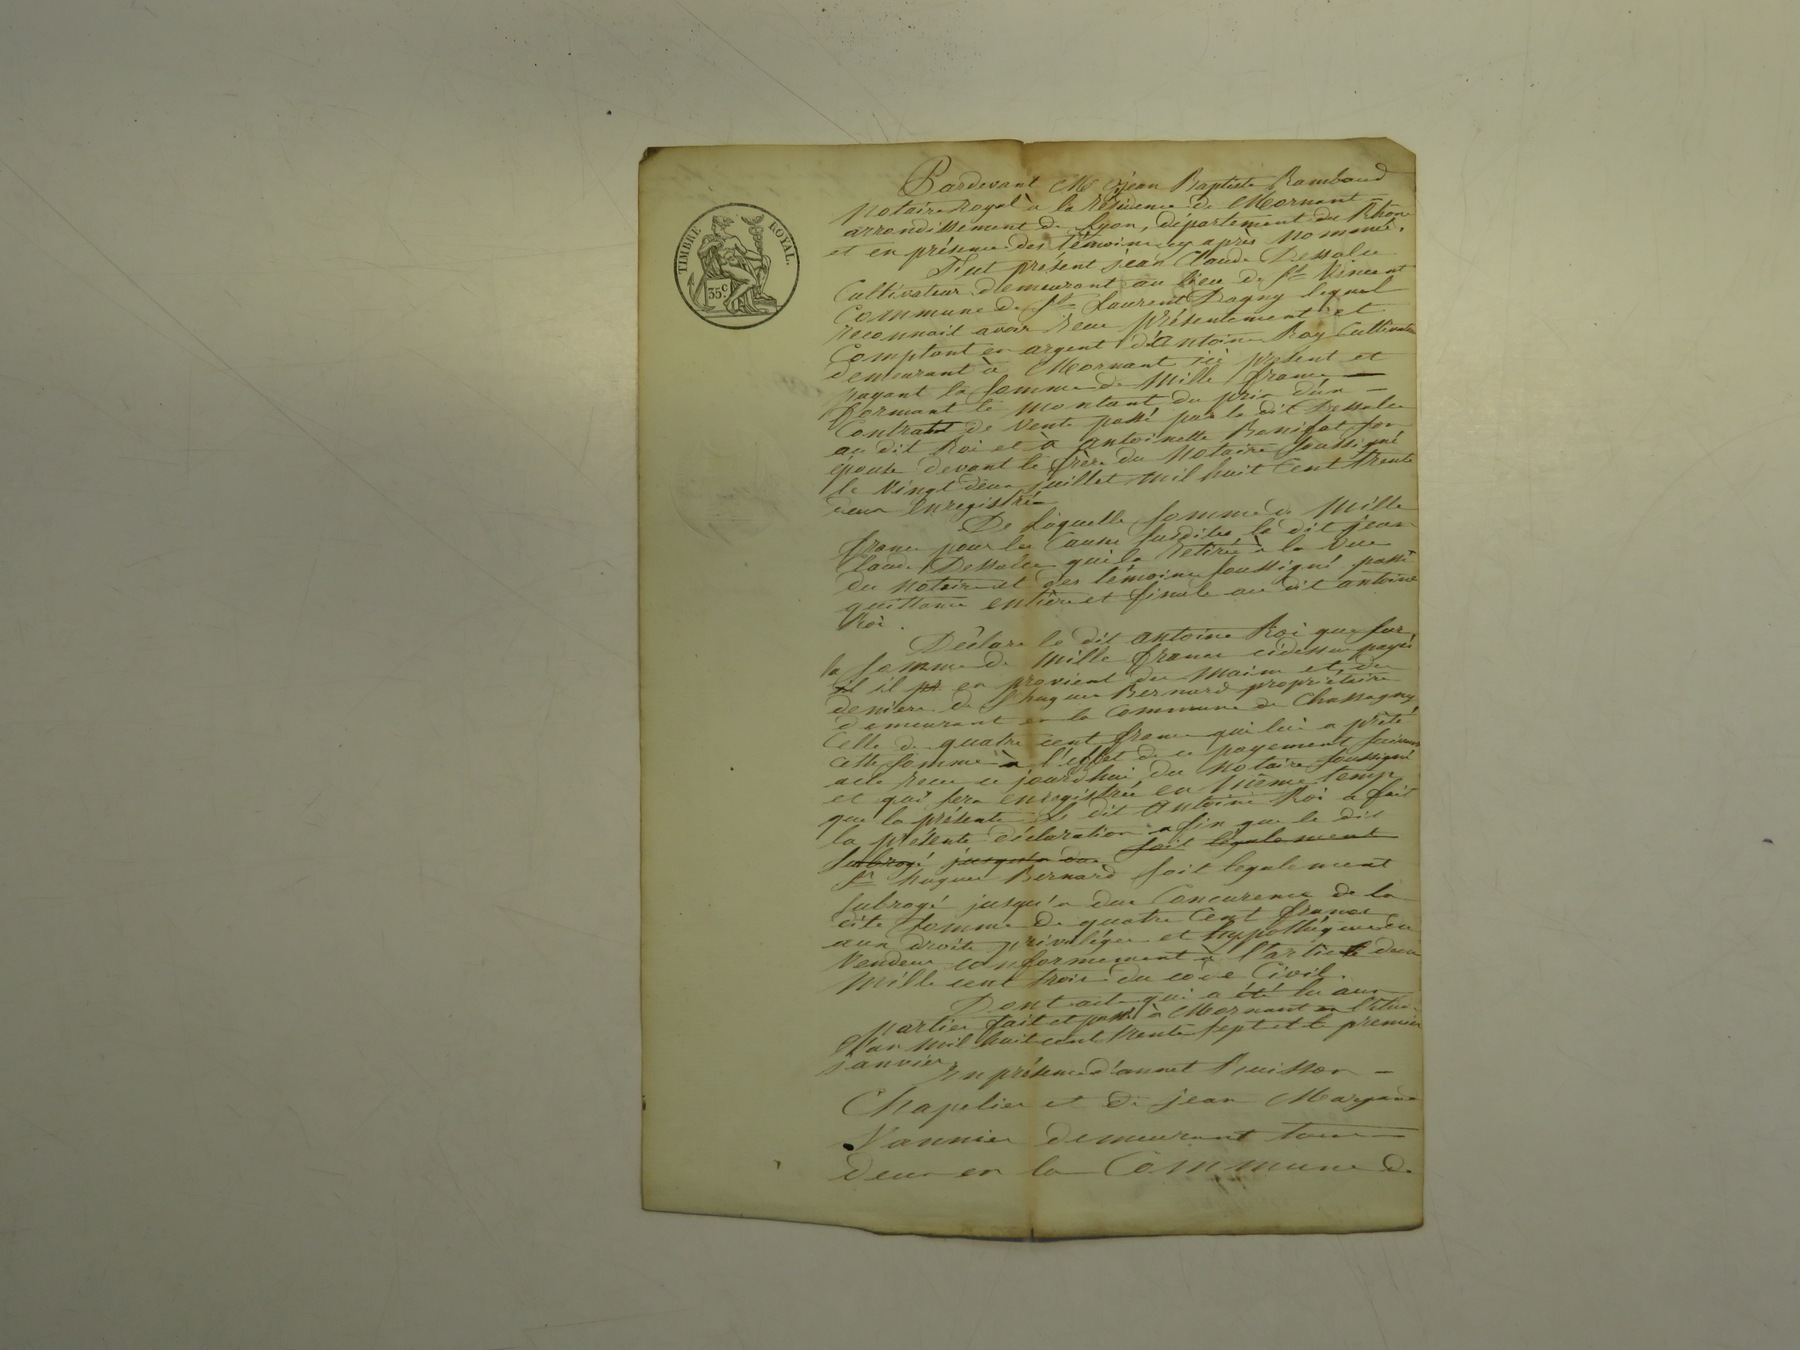 TIMBRE ROYAL.
35 c.
Pardevant Me jean Baptiste Rambaud
Notaire Royal à la résidence de Mornant
arrondissement de Lyon, département du Rhone
et en présence des témoins cy après nommés,
Fut présent jean Claude Dessalle
Cultivateur demeurant au lieu de St Vincent
Commune de St Laurent Dagny lequel
reconnait avoir recu présentement et
Comptant en argent d'Antoine Roy Cultivateur
demeurant à Mornant ici présent et
payant la somme de Mille francs
formant le montant du prix d'un
Contrat de vente passé par le dit Dessalle
au dit Roi et à Antoinette Bonifat son
épouse devant le frère du Notaire soussigné
le Vingt deux juillet mil huit Cent trente
deux Enregistré
De laquelle somme de Mille
francs pour les Causes susdites le dit jean
Claude Dessalle qui la retirée à la vue
du Notaire et des témoins soussignés passe
quittance entière et finale au dit antoine
Roi.
Déclare le dit antoine Roi que sur
la somme de Mille francs cidessus payée
il il en provient des mains et des
deniers de hugues Bernard propriétaire
demeurant en la Commune de Chassagny
Celle de quatre cent francs qui lui a prêté
cette somme à l'effet de ce payement suivant
acte recu ce jourdhui du Notaire soussigné
et qui sera enregistré en même temp
que la présente le dit Antoine Roi a fait
la présente déclaration afin que le dit
soit légalement
subrogé jusqu'a due
Sr hugues Bernard soit légalement
subrogé jusqu'a due Concurence de la
dite somme de quatre Cent francs
aux droits privilèges et hypothèques du
Vendeur conformement à l'article deux
Mille cent trois du code Civil.
Dont acte qui a été lu aux
parties fait et passé à Mornant en l'étude
l'an mil huit cent trente sept et le premier
janvier
En présence d'annet
Chapelier et de jean
Vannier demeurant tous
deux en la Commune de